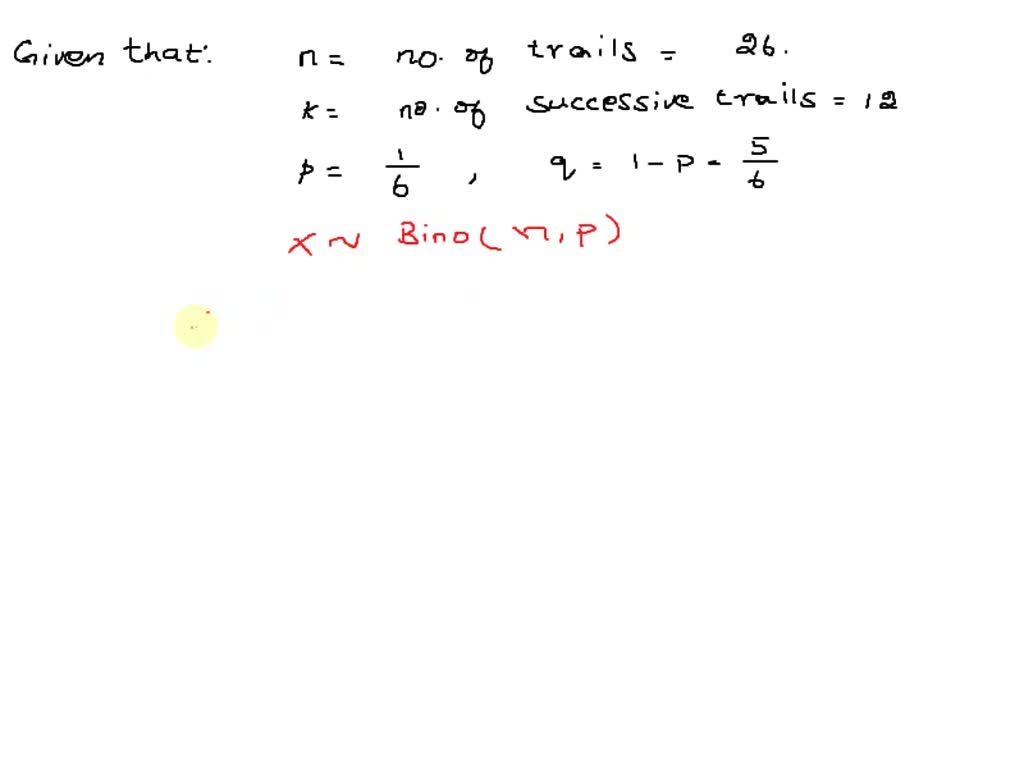 Given that: n = no. of trails = 26.
k = no. of successive trails = 12
p = 1/6 , q = 1 - P = 5/6
X ~ Bino(n, P)